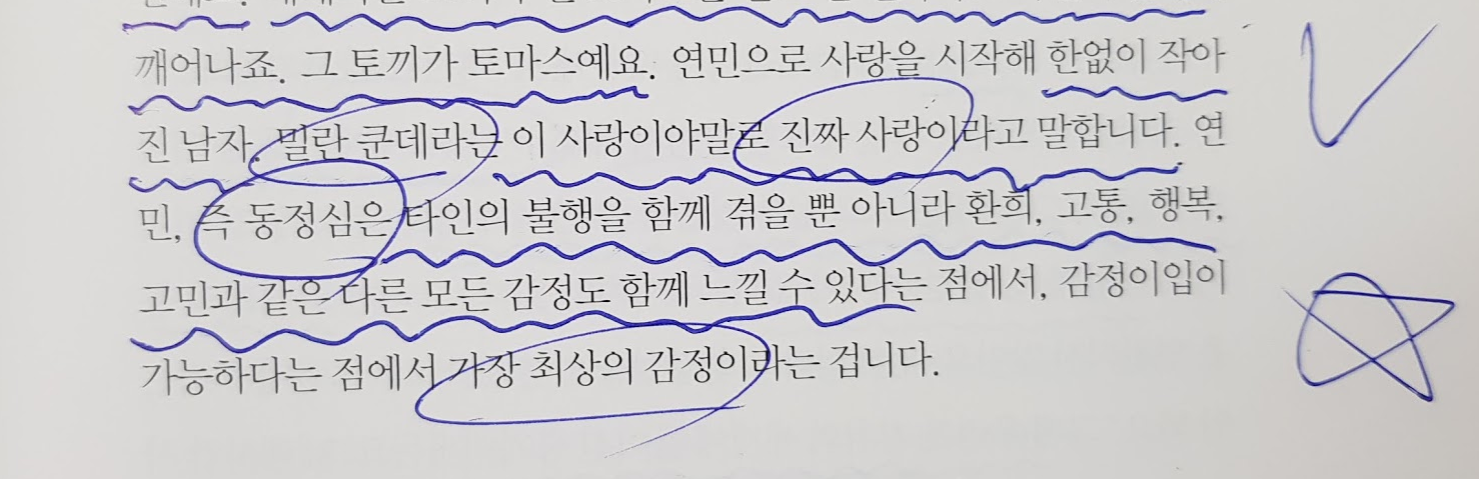 깨어나죠. 그 토끼가 토마스예요. 연민으로 사랑을 시작해 한없이 작아
진 남자. 밀란 쿤데라는 이 사랑이야말로 진짜 사랑이라고 말합니다. 연
민, 즉 동정심은 타인의 불행을 함께 겪을 뿐 아니라 환희, 고통, 행복,
고민과 같은 다른 모든 감정도 함께 느낄 수 있다는 점에서, 감정이입이
가능하다는 점에서 가장 최상의 감정이라는 겁니다.